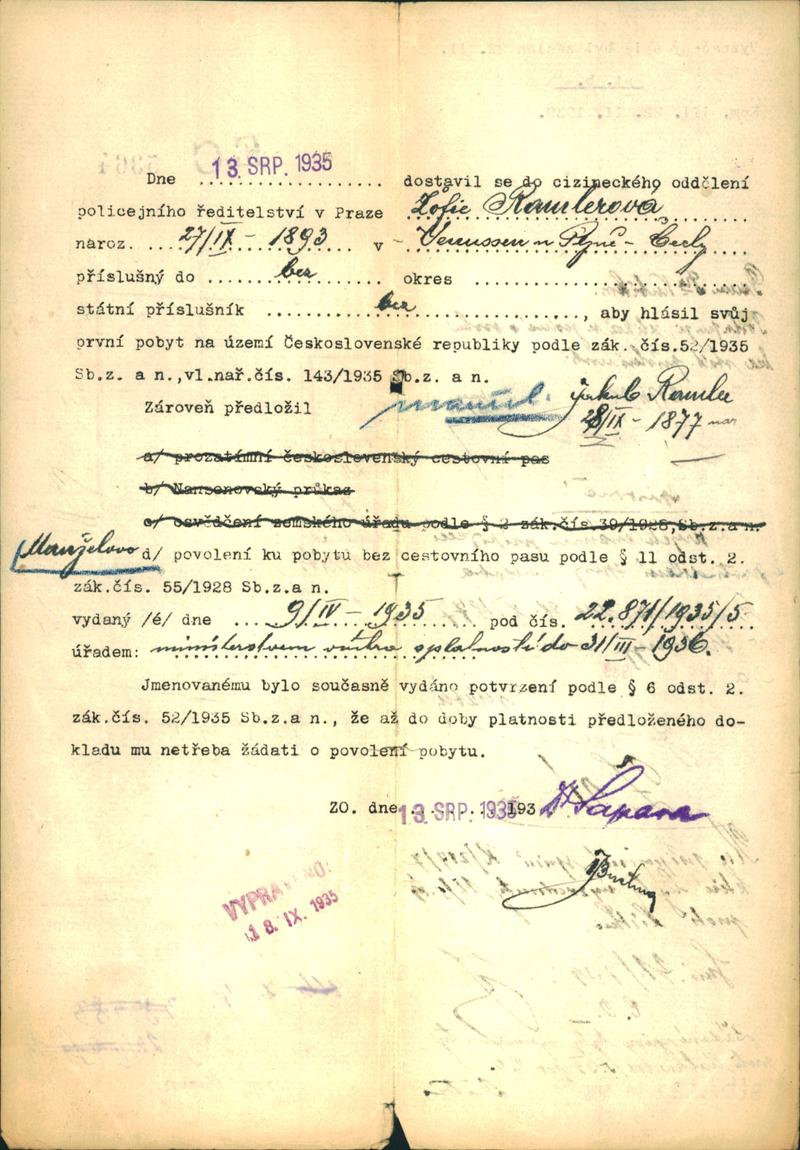 Dne 13. SRP. 1935 dostavil se do cizineckého oddělení
policejního ředitelství v Praze Žofie Ramlerová
naroz. 27/IX - 1893 v - - Čechy
příslušný do bez okres
státní příslušník bez, aby hlásil svůj
první pobyt na území Československé republiky podle zák. čís.52/1935
Sb.z. a n.,vl.nař.čís. 143/1935 Sb.z. a n.
Zároveň předložil manžel. Jakub Ramler
28/IX - 1877 nar
a/ prozatímní československý cestovní pas
b/ Nansenovský průkaz
c/ osvědčení zemského úřadu podle § 2 zák.čís.39/1928,Sb.z.a n.
Manželovo d/ povolení ku pobytu bez cestovního pasu podle § 11 odst. 2.
zák.čís. 55/1928 Sb.z.a n.
vydaný /é/ dne 9/IV - 1935 pod čís. 22.871/1935/5
úřadem: ministerstvem vnitra s platností do 31/III - 1936.
Jmenovanému bylo současně vydáno potvrzení podle § 6 odst. 2.
zák.čís. 52/1935 Sb.z.a n., že až do doby platnosti předloženého do-
kladu mu netřeba žádati o povolení pobytu.
ZO. dne 13. SRP. 1935 193 Dr Šapara
VYPRAVENO:
18. IX. 1935